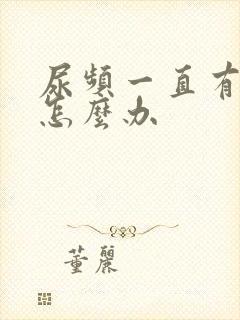 尿頻一直有
怎麼办
董麗